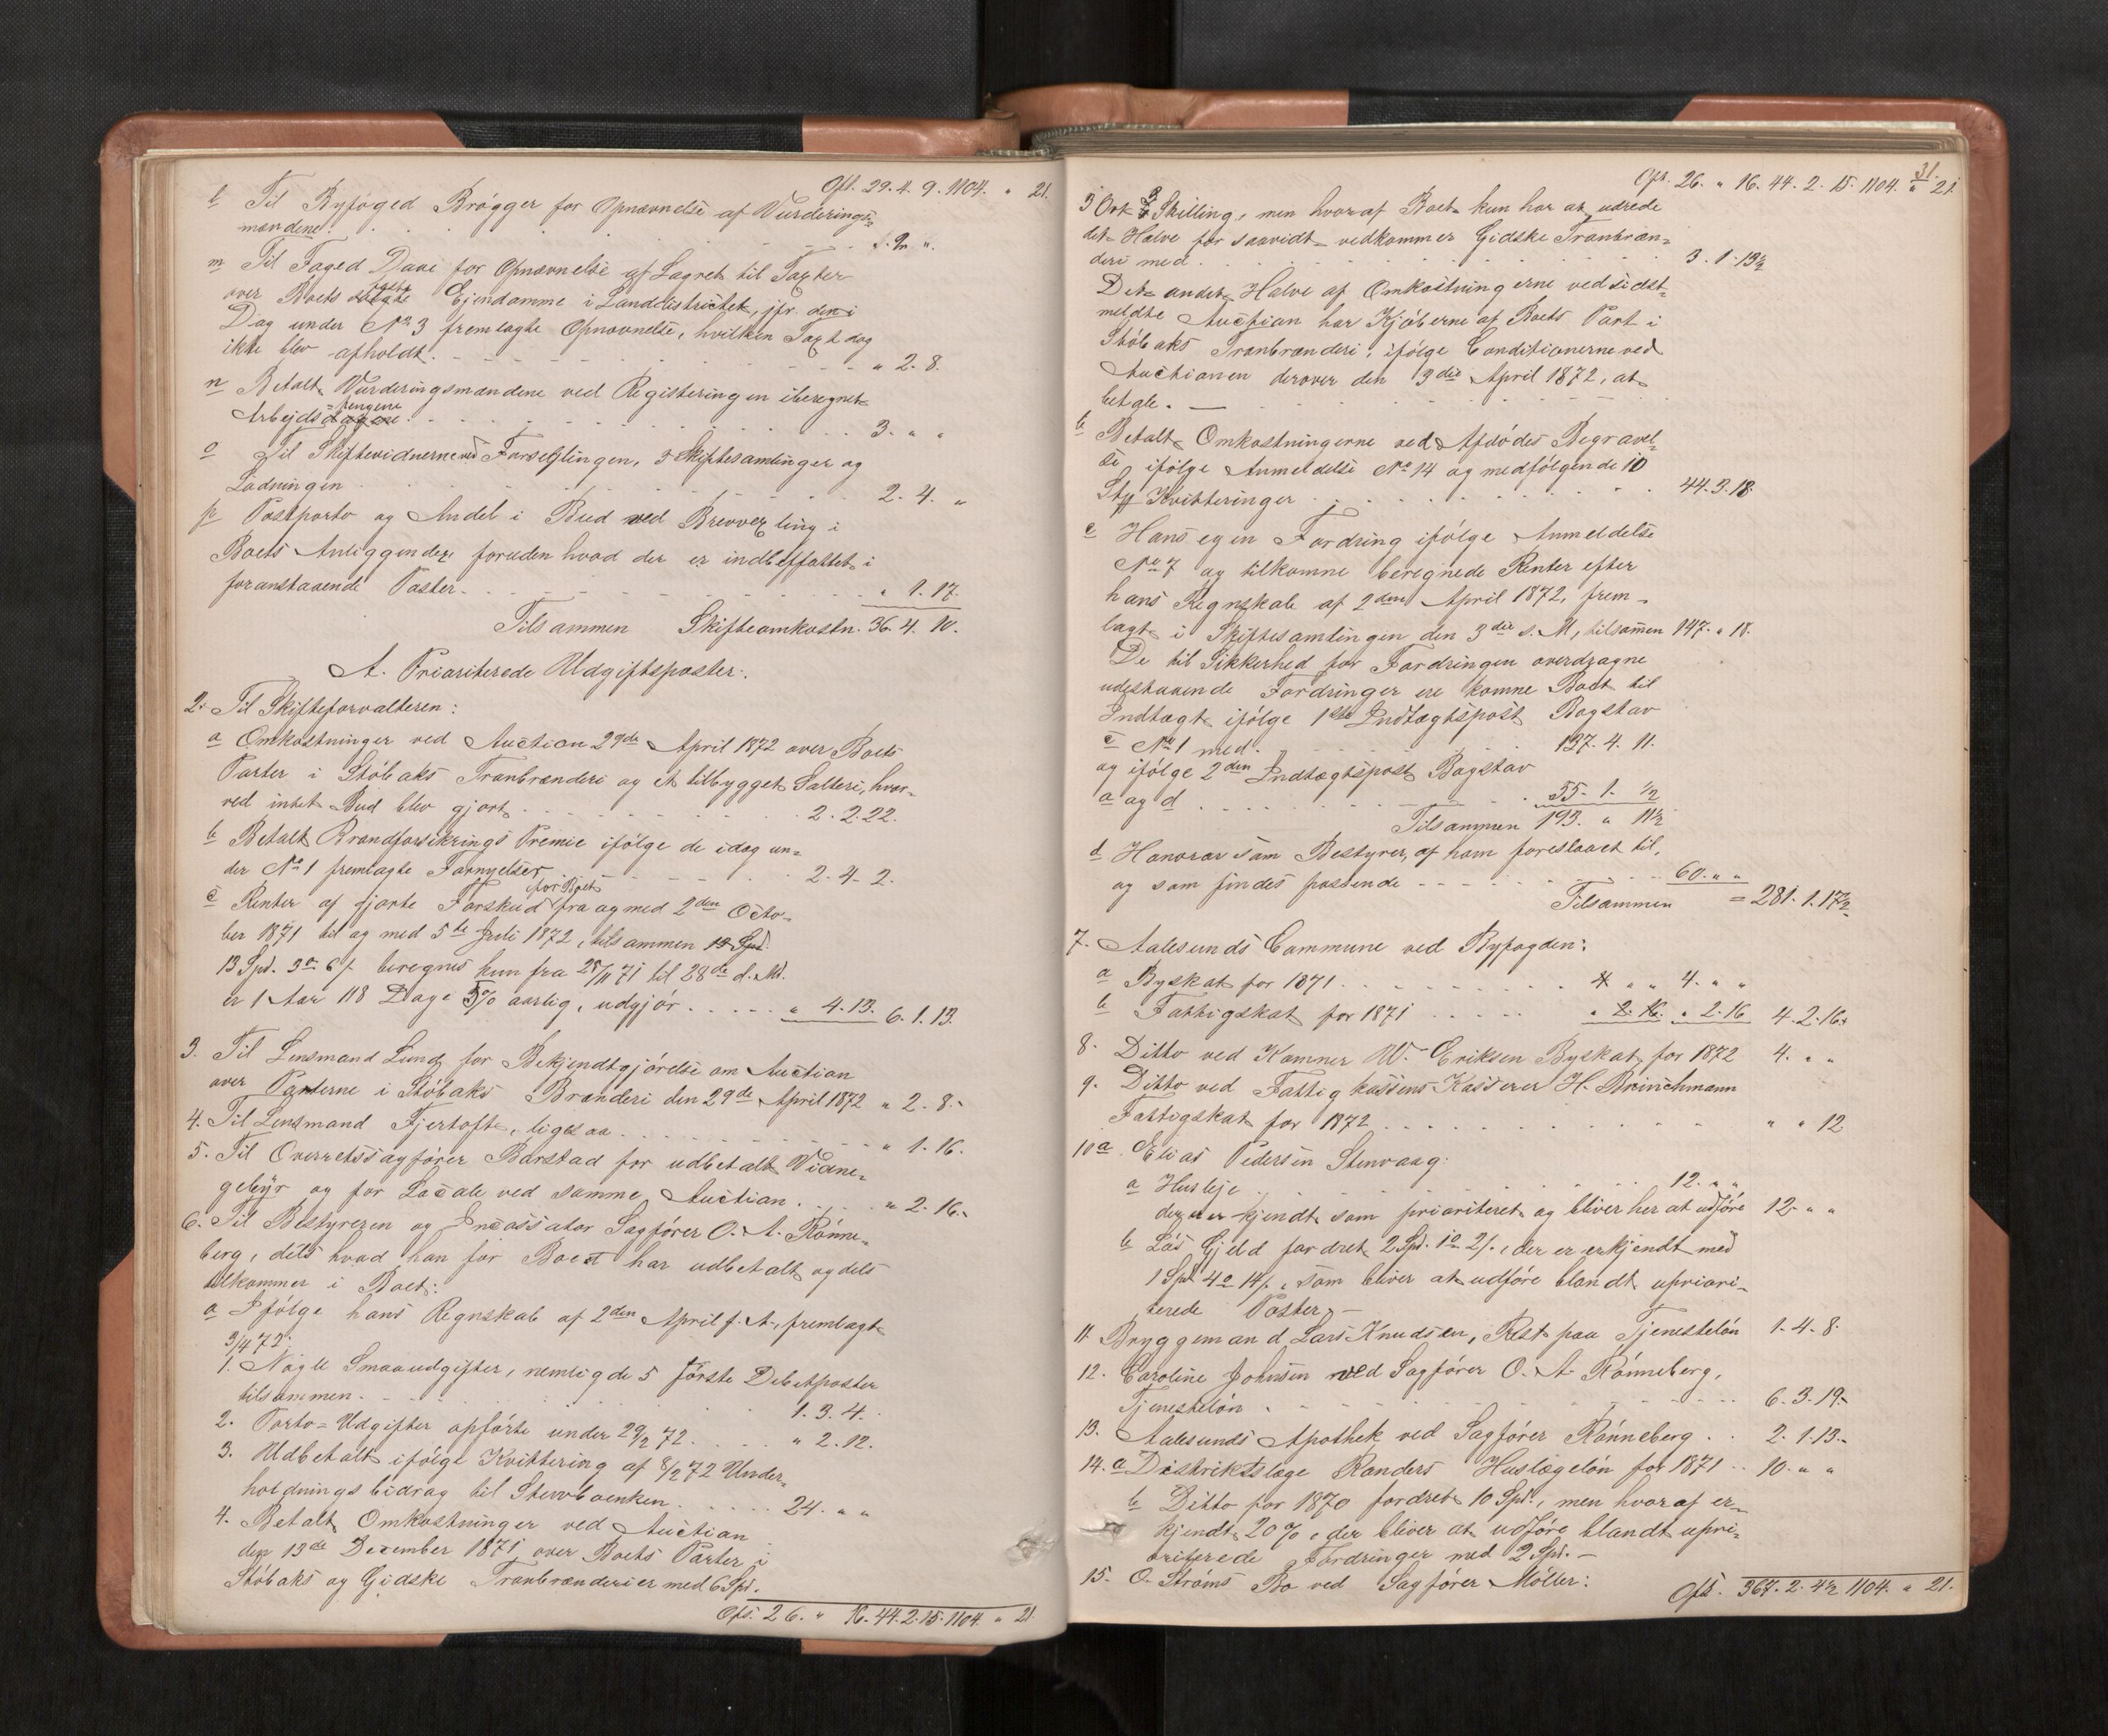 Oft. 29. 4. 9. 1104. " 21.
l Til Byfoged Brøgger for Opnævnelse af Vurderings-
mændene.
m Til Foged Daae for Opnævnelse af Lagret til Taxter
over Boets faste Ejendomme i Landdistrictet, jfr. den i
Dag under No 3 fremlagte Opnævnelse, hvilken Taxt dog
ikke blev afholdt. " 2. 8.
n Betalt Vurderingsmændene ved Registeringen iberegnet
Arbejdspengene. 3. " "
o Til Skiftevidnerne ved Forseglingen, 3 Skiftesamlinger og
Lodningen 2. 4. "
p Postporto og Andel i Bud ved Brevvexling i
Boets Anliggender foruden hvad der er indbefattet i
foranstaaende Poster. " 1. 17.
Tilsammen Skifteomkostn. 36. 4. 10.
A. Prioriterede Udgiftsposter.
2. Til Skifteforvalteren:
a Omkostninger ved Auction 29de April 1872 over Boets
Parter i Stöbaks Tranbrænderi og et tilbygget Salteri, hvor-
ved intet Bud blev gjort 2. 2. 22.
b Betalt Brandforsikrings Premie ifölge de idag un-
der No 1 fremlagte Fornyelser 2. 4. 2.
c Renter af gjorte Forskud for Boet fra og med 2den Octo-
ber 1871 til og med 5te Juli 1872, tilsammen 13 Spd.
13 Spd. 3o 6/. beregnes kun fra 28/11 71 til 28de d. M.
er 1 Aar 118 Dage 5% aarlig, udgjör " 4. 13. 6. 1. 13.
3. Til Lensmand Lund for Bekjendtgjörelse om Auction
over Parterne i Stöbaks Brænderi den 29de April 1872 " 2. 8.
4. Til Lensmand Fjertoft, ligesaa " 1. 16.
5. Til Overretssagförer Barstad for udbetalt Vidne-
gebyr og for Locale ved samme Auction " 2. 16.
6. Til Bestyreren og Incassator Sagförer O. A. Rönne-
berg, dels hvad han for Boet har udbetalt og dels
tilkommer i Boet:
a Ifölge hans Regnskab af 2den April f. A., fremlagt
3/4 72:
1. Nogle Smaaudgifter, nemlig de 5 förste Debetposter
tilsammen 1. 3. 4.
2. Porto-Udgifter opförte under 29/2 72 " 2. 12.
3. Udbetalt ifölge Kvittering af 8/2 72 Under-
holdningsbidrag til Stervboenken 24. " "
4. Betalt Omkostninger ved Auction
den 13de December 1871 over Boets Parter i
Stöbaks og Gidske Tranbrænderier med 6 Spd.
Ofs. 26. " 16. 44. 2. 15. 1104. " 21.
31.
Ofs. 26. " 16. 44. 2. 15. 1104. " 21.
3 Ort 3 Skilling, men hvoraf Boet kun har at udrede
det Halve for saavidt vedkommer Gidske Tranbræn-
deri med 3. 1. 13½
Det andet Halve af Omkostningerne ved sidst-
meldte Auction har Kjöberne af Boets Part i
Stöbaks Tranbrænderi, ifölge Conditionerne ved
Auctionen derover den 3die April 1872, at
betale. —
b Betalt Omkostningerne ved Afdödes Begravel-
se ifölge Anmeldelse No 14 og medfölgende 10
Stk Kvitteringer 44. 3. 18.
c Hans egen Fordring ifölge Anmeldelse
No 7 og tilkomne beregnede Renter efter
hans Regnskab af 2den April 1872, frem-
lagt i Skiftesamlingen den 3die s. M., tilsammen 147. " 18.
De til Sikkerhed for Fordringen overdragne
udestaaende Fordringer ere komne Boet til
Indtægt ifölge 1ste Indtægtspost Bogstav
c No 1 med 137. 4. 11.
og ifölge 2den Indtægtspost Bogstav
a og d 55. 1. ½
Tilsammen 193. " 11½
d Honorar som Bestyrer, af ham foreslaaet til,
og som findes passende 60. " "
Tilsammen = 281. 1. 17½.
7. Aalesunds Commune ved Byfogden:
a Byskat for 1871 4 " " 4. " "
b Fattigskat for 1871 " 2. 16. " 2. 16 4. 2. 16.
8. Ditto ved Kæmner W. Eriksen Byskat for 1872 4. " "
9. Ditto ved Fattigkassens Kasserer H. Brinchmann
Fattigskat for 1872 " " 12
10a. Elias Pedersen Stenvaag:
a Husleje 12. " "
der er erkjendt som prioriteret og bliver her at udföre 12. " "
b Lös Gjeld fordret 2 Spd. 1o 2/., der er erkjendt med
1 Spd 4o 14/., som bliver at udföre blandt upriori-
terede Poster. —
11. Bryggemand Lars Knudsen, Rest paa Tjenestelön 1. 4. 8.
12. Caroline Johnsen ved Sagförer O. A. Rönneberg,
Tjenestelön 6. 3. 19.
13. Aalesunds Apothek ved Sagförer Rönneberg 2. 1. 13.
14. a Distriktslæge Randers Huslægelön for 1871 10. " "
b Ditto for 1870 fordret 10 Spd., men hvoraf er-
kjendt 20%, der bliver at udföre blandt upri-
oriterede Fordringer med 2 Spd. —
15. O. Ströms Bo ved Sagförer Möller:
Ofs. 367. 2. 4½ 1104. " 21.